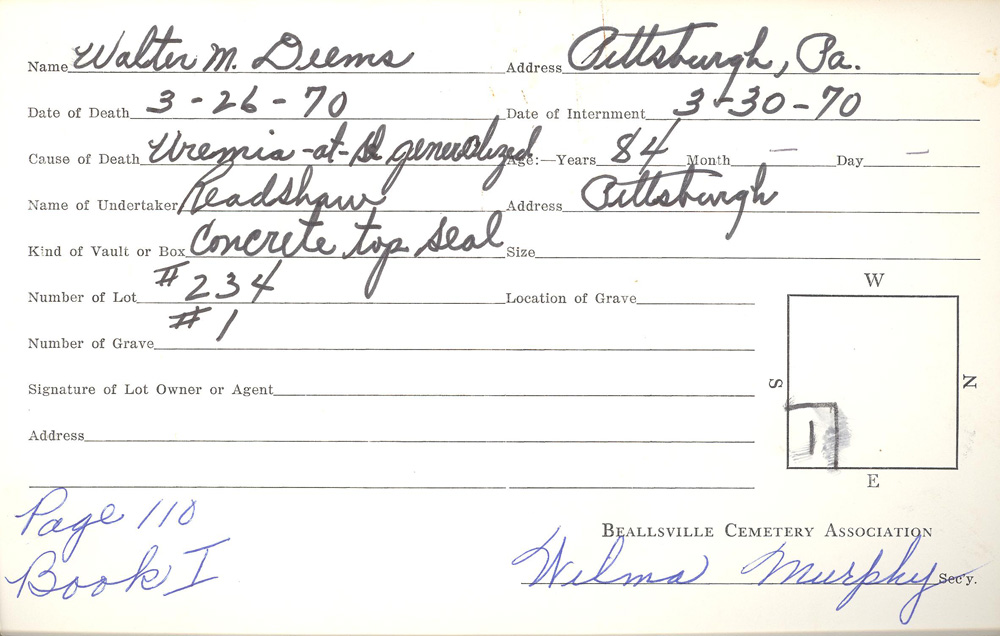 Name Walter M. Deems Address Pittsburgh, Pa.
Date of Death 3-26-70 Date of Internment 3-30-70
Cause of Death Uremia-at- generalized Age:—Years 84 Month — Day —
Name of Undertaker Readshaw Address Pittsburgh
Kind of Vault or Box Concrete top seal Size
Number of Lot #234 Location of Grave
Number of Grave #1
Signature of Lot Owner or Agent
Address
W
S
N
1
E
Page 110
Book I
Beallsville Cemetery Association
Wilma Murphy Sec'y.